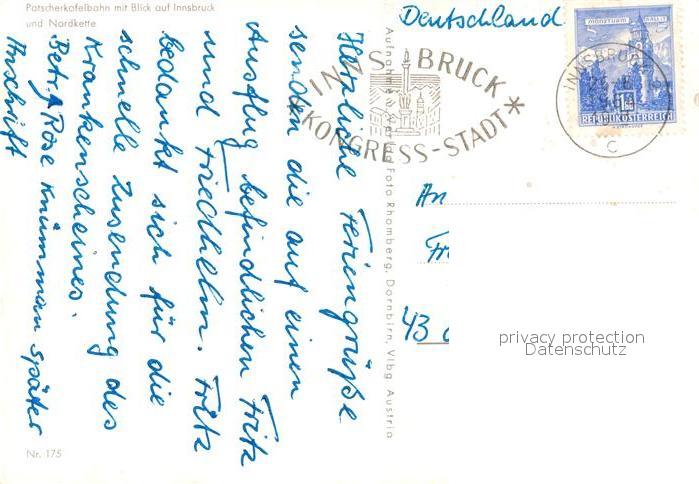 Patscherkofelbahn mit Blick auf Innsbruck
und Nordkette
Herzliche Feriengrüße
senden die auf einen
Ausflug befindlichen Fritz
und Friedhelm. Fritz
bedankt sich für die
schnelle Zusendung des
Krankenscheines.
Betr. A Rose Knümman später
Anschrift
Nr. 175
Aufnahme u. Verlag Foto Rhomberg, Dornbirn, Vlbg Austria
INNSBRUCK
KONGRESS-STADT*
Deutschland
MÜNZTURM HALL i.T.
REPUBLIK ÖSTERREICH
INNSBRUCK
C
An
Fr
43
privacy protection
Datenschutz